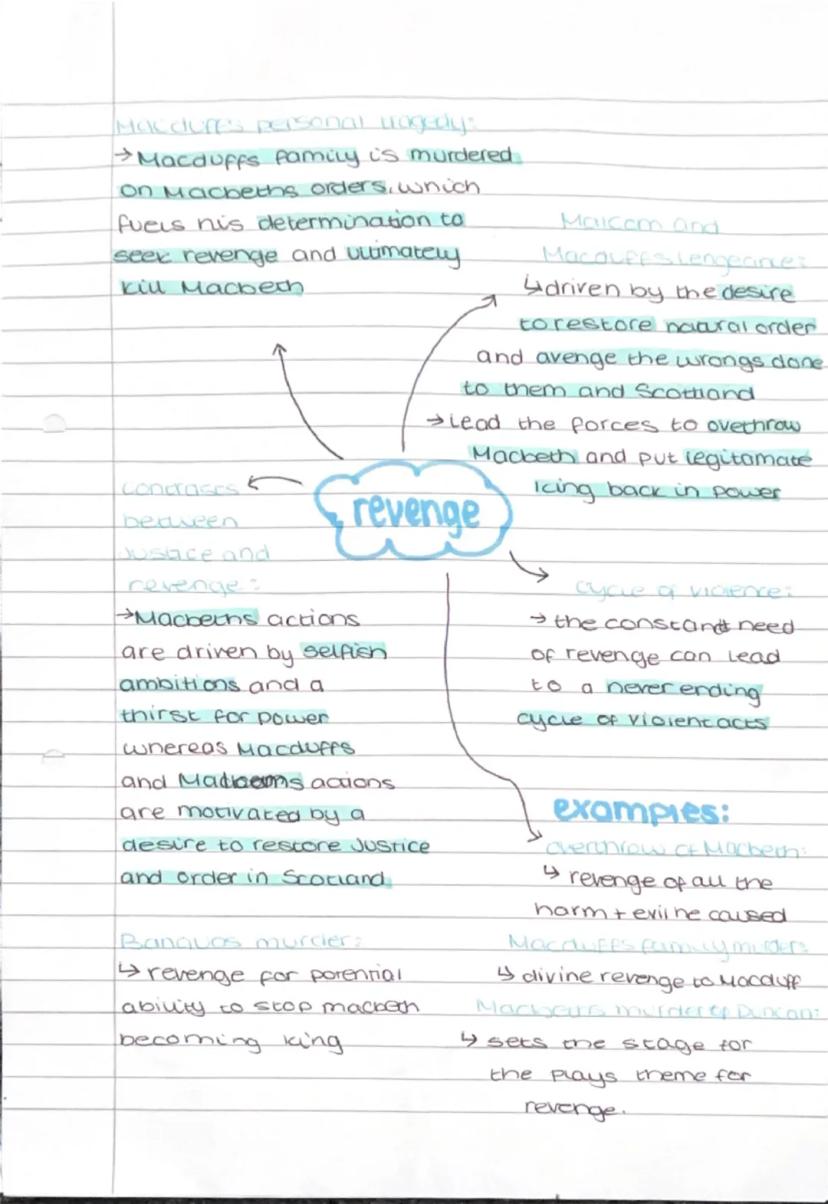 Macduffs personal tragedy:
→Macduffs family is murdered
on Macbeths orders, which
fuels his determination to
seek revenge and ultimately
kill Macbeth
Malcom and
Macduffs vengeance:
↳driven by the desire
to restore natural order
and avenge the wrongs done
to them and Scotland
→Lead the forces to overthrow
Macbeth and put legitamate
king back in power
revenge
contrases
between
justice and
revenge:
→Macbeths actions
are driven by selfish
ambitions and a
thirst for power
whereas Macduffs
and Malcoms actions
are motivated by a
desire to restore Justice
and order in Scotland
cycle of violence:
→the constant need
of revenge can lead
to a never ending
cycle of violent acts
examples:
overthrow of Macbeth:
↳ revenge of all the
harm + evil he caused
Banquos murder:
↳ revenge for potential
ability to stop macbeth
becoming king
Macduffs family murder:
↳ divine revenge to Macduff
Macbeths murder of Duncan:
↳ sets the stage for
the plays theme for
revenge.